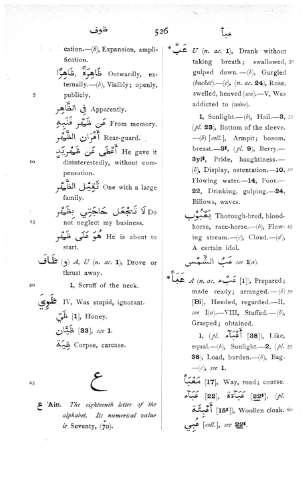 ظوف
526
عبأ
cation.—(b), Expansion, ampli-
fication.
ظَاهِرَةً, ظَاهِرًا Outwardly, ex-
ternally.—(b), Visibly; openly,
5 publicly.
فِي الظَّاهِرِ Apparently.
عَنْ ظَهْرِ قَلْبِهِ From memory.
أَقْرَانُ الظَّهْرِ Rear-guard.
أَعْطَى عَنْ ظَهْرِ يَدٍ He gave it
10 disinterestedly, without com-
pensation.
ثَقِيلُ الظَّهْرِ One with a large
family.
لَا تَجْعَلْ حَاجَتِي بِظَهْرٍ Do
15 not neglect my business.
هُوَ عَلَى ظَهْرٍ He is about to
start.
ظَافَ (و) A, U (n. ac. 1), Drove or
thrust away.
20 1, Scruff of the neck.
ظَوِيَ IV, Was stupid, ignorant.
ظَيّ [1], Honey.
ظَيَّان [33], see 1.
ظِيَّة Corpse, carcase.
ع
25 ع 'Ain. The eighteenth letter of the
alphabet. Its numerical value
is Seventy, (70).
عَبَّ U (n. ac. 1), Drank without
taking breath; swallowed,
gulped down.—(b), Gurgled
(bucket).—(c), (n. ac. 24), Rose,
swelled, heaved (sea).—V, Was
addicted to (wine).
1, Sunlight.—(b), Hail.—3,
(pl. 23), Bottom of the sleeve.
—(b) [coll.], Armpit; bosom,
breast.—
Pride, haughtiness.—
(b), Display, ostentation.—10,
Flowing water.—14, Poor.—
22, Drinking, gulping.—24,
Billows, waves.
يَعْبُوب Thorough-bred, blood-
horse, race-horse.—(b), Flow-
ing stream.—(c), Cloud.—(d),
A certain idol.
عَبُ الشَّمْسِ see 1(a).
عَبَأَ A (n. ac. عَبْء [1]), Prepared;
made ready; arranged.—(b)
[Bi], Heeded, regarded.—II,
see I(a).—VIII, Stuffed.—(b),
Grasped; obtained.
1, (pl. أَعْبَاء [38]), Like,
equal.—(b), Sunlight.—2, (pl.
38), Load, burden.—(b), Bag.
—(c), see 1.
مَعْبَأ [17], Way, road; course.
عَبَاء [22], عَبَاءَة [22], (pl.
أَعْبِئَة [15]), Woollen cloak.
عُبِّي [coll.], see